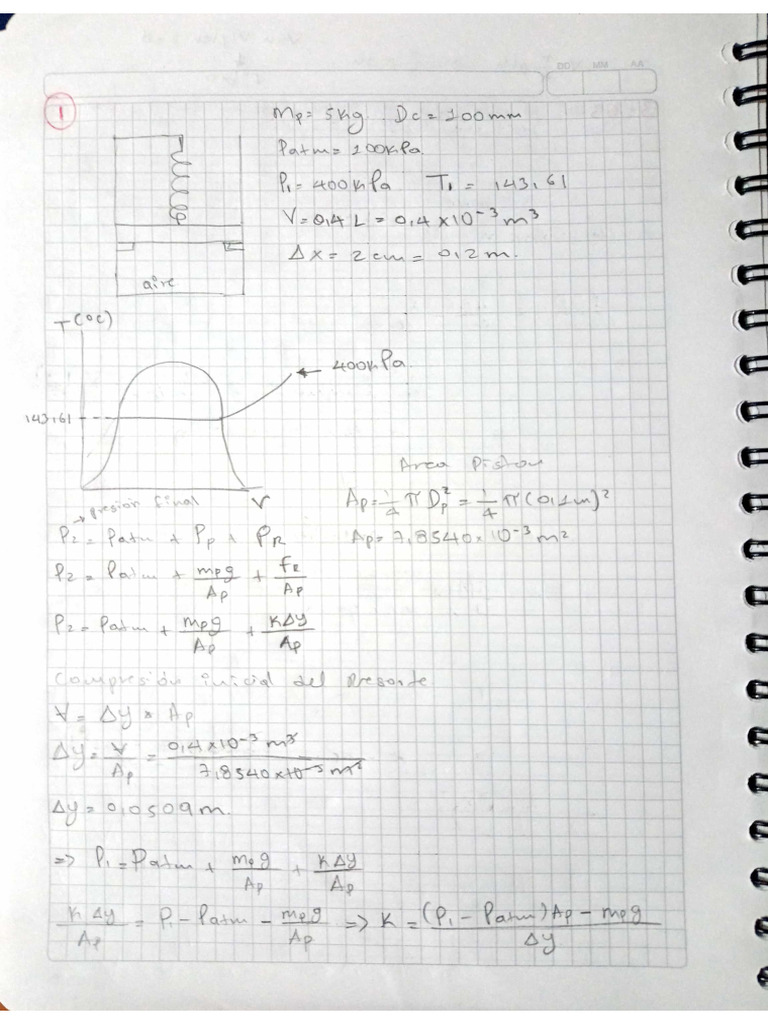 DD MM AA
1
mp= 5kg. Dc = 100mm
Patm= 100kPa.
P₁= 400kPa T₁ = 143,61
V= 0,4 L = 0,4 x 10⁻³ m³
Δx = 2 cm = 0,2 m.
aire
T(°C)
400kPa.
143,61
V
Area Piston
Ap= 1/4 π Dp² = 1/4 π (0,1m)²
Ap= 7,8540 x 10⁻³ m²
→ presión final
P₂ = Patm + Pp + PR
P₂ = Patm + mpg/Ap + fR/Ap
P₂ = Patm + mpg/Ap + KΔy/Ap
Compresión inicial del Resorte
V= Δy x Ap
Δy= V/Ap = 0,4x10⁻³ m³/7,8540x10⁻³ m²
Δy = 0,0509 m.
=> P₁ = Patm + mpg/Ap + KΔy/Ap
KΔy/Ap = P₁ - Patm - mpg/Ap => K = (P₁ - Patm)Ap - mpg/Δy